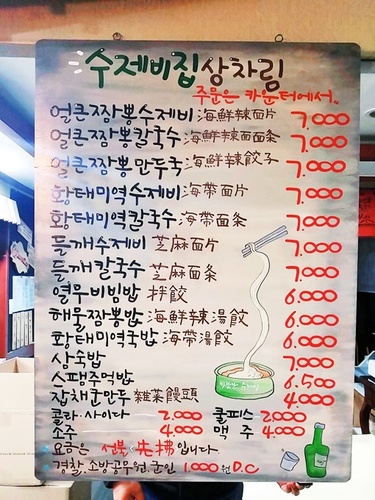 수제비집 상차림
주문은 카운터에서..
얼큰짬뽕수제비 海鮮辣面片 7.000
얼큰짬뽕칼국수 海鮮辣面面条 7.000
얼큰짬뽕만두국 海鮮辣餃子 7.000
황태미역수제비 海帶面片 7.000
황태미역칼국수 海帶面条 7.000
들깨수제비 芝麻面片 7.000
들깨칼국수 芝麻面条 7.000
열무비빔밥 拌餃 6.000
해물짬뽕밥 海鮮辣湯餃 6.000
황태미역국밥 海帶湯餃 6.000
삼숙밥 7.000
스팸주먹밥 6.500
잡채군만두 雜菜饅頭 4.000
콜라·사이다 2.000 쿨피스 2.000
소주 4.000 맥주 4.000
요금은 선불 先拂 입니다.
경찰, 소방공무원, 군인 1.000원 D.C